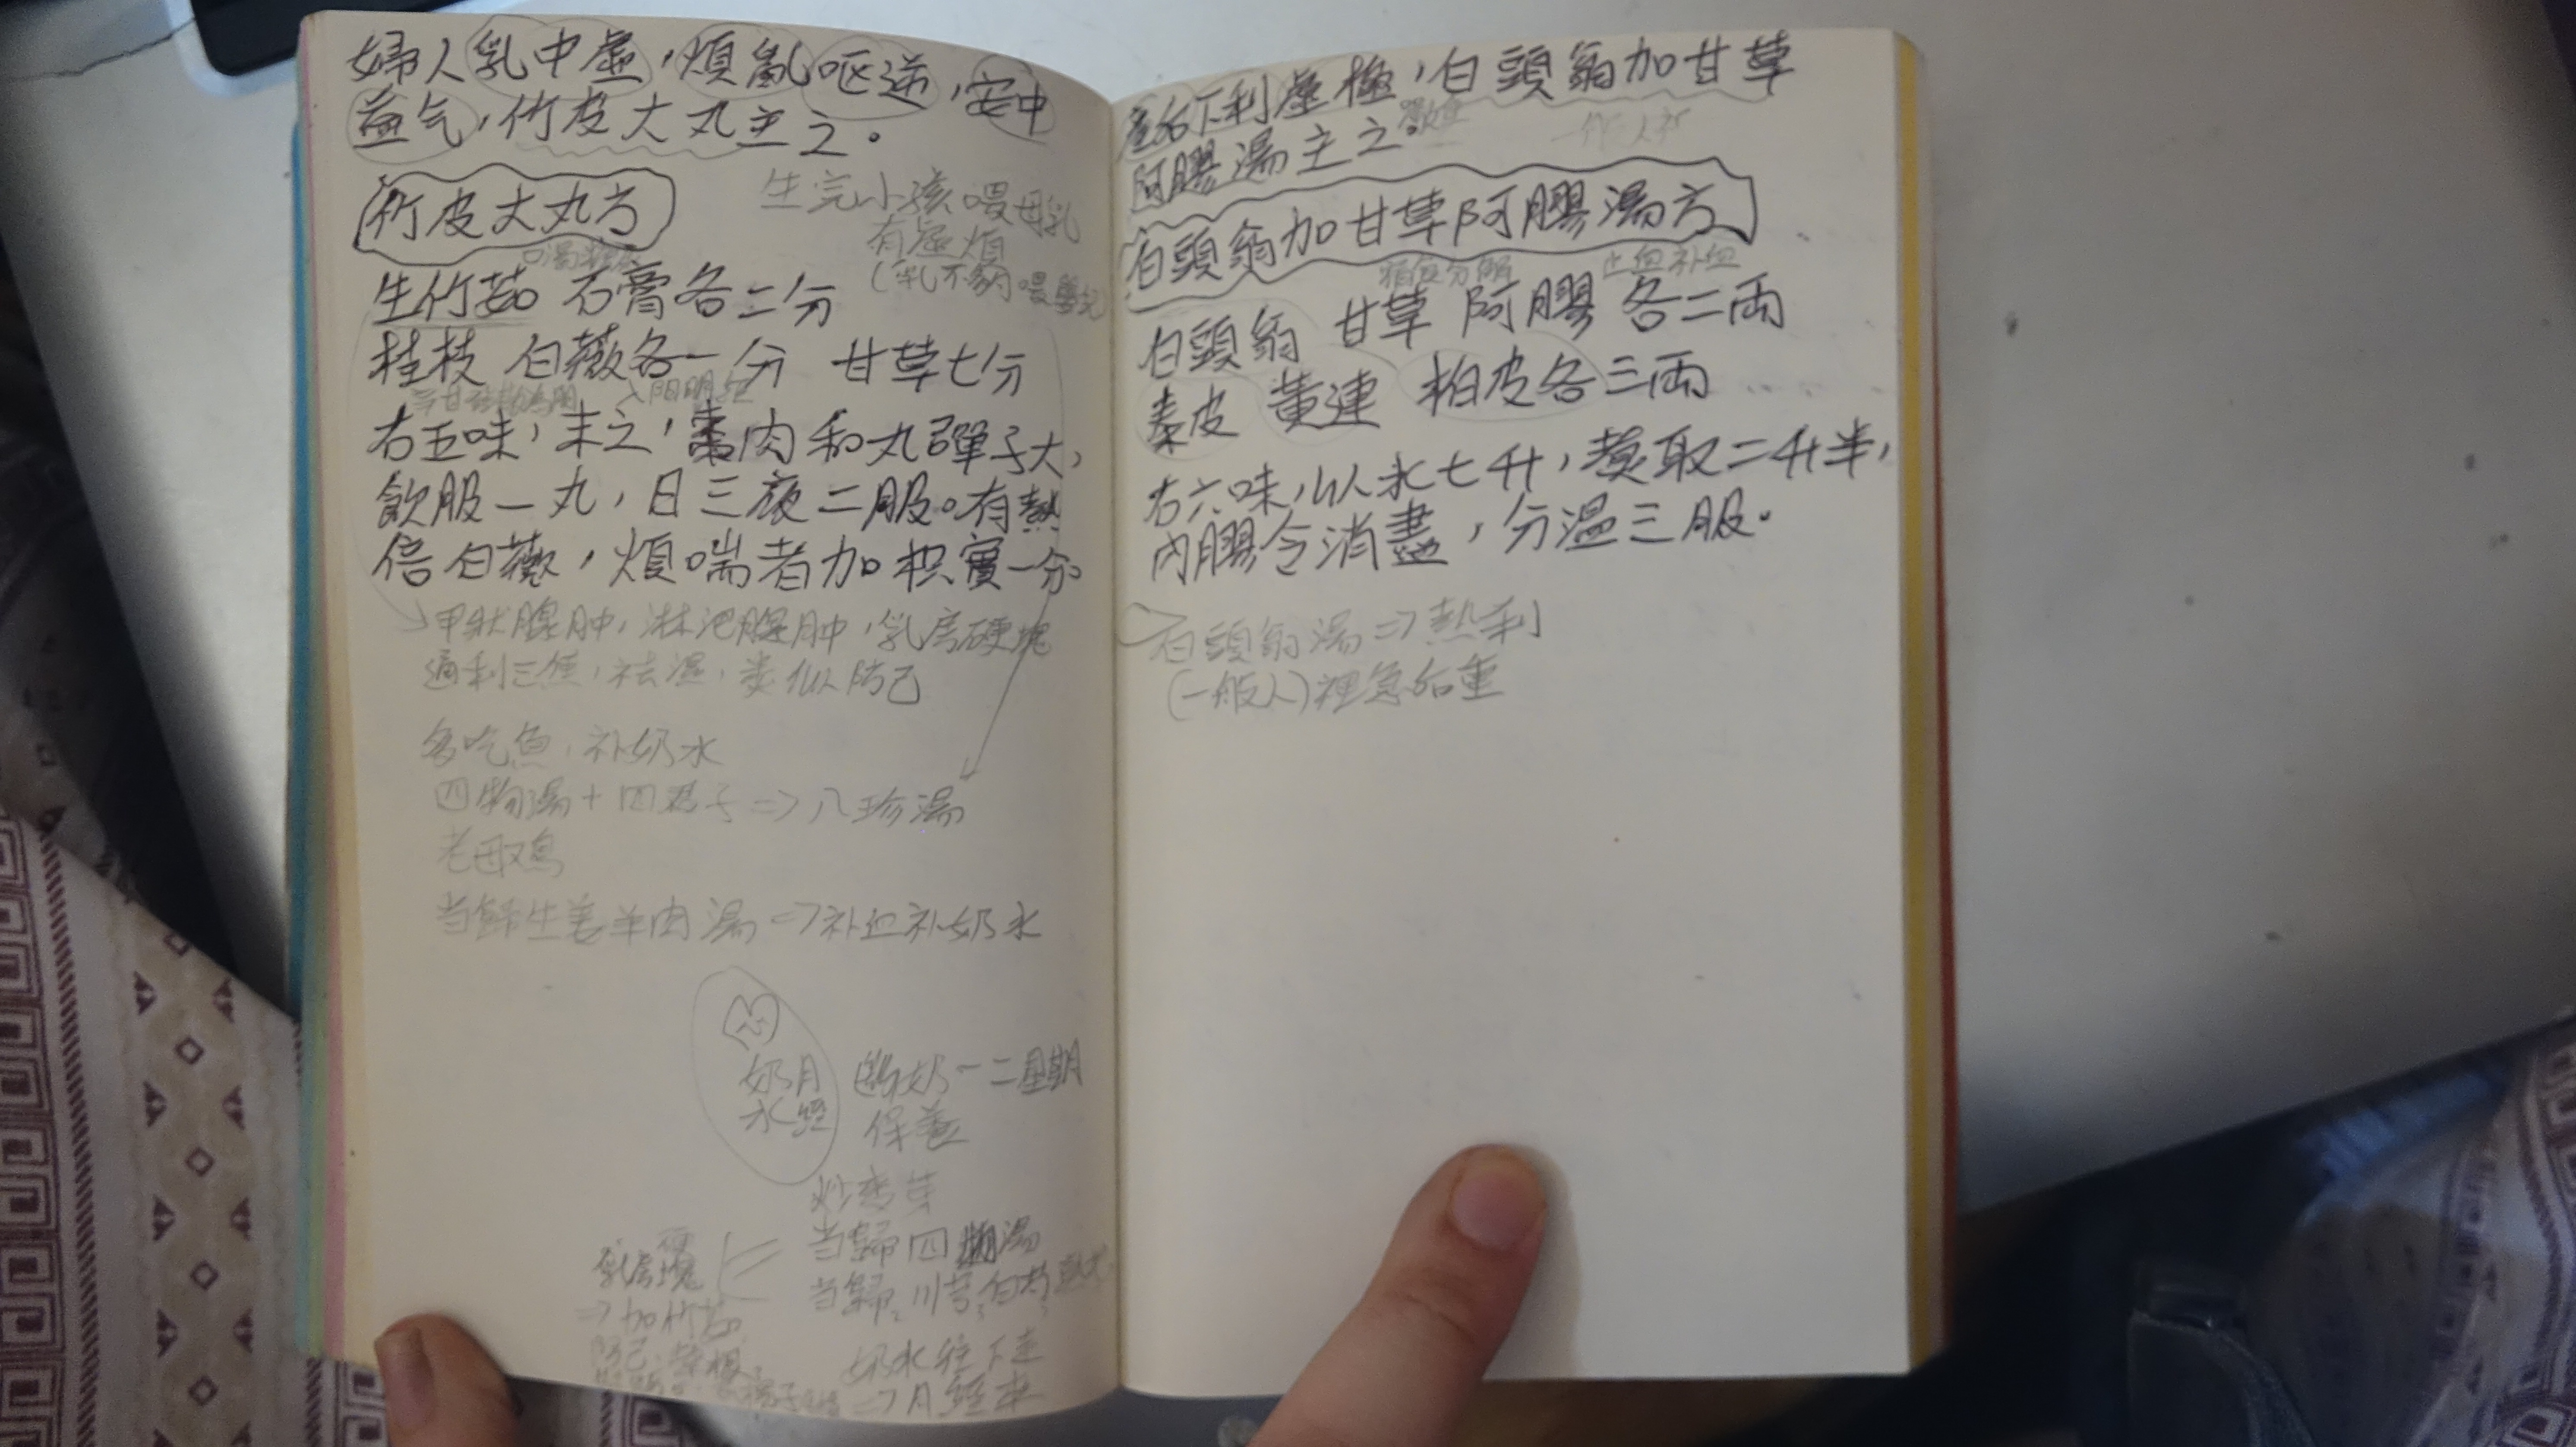 婦人乳中虛，煩亂呕逆，安中
益气，竹皮大丸主之。
竹皮大丸方
生完小孩喂母乳
有虛煩
(乳不夠喂嬰兒
生竹茹 石膏各二分
桂枝 白薇各一分 甘草七分
右五味，末之，棗肉和丸彈子大，
飲服一丸，日三夜二服。有熱
倍白薇，煩喘者加枳實一分。
甲狀腺肿，淋巴腺肿，乳房硬塊
通利三焦，祛濕，类似防己
多吃魚，补奶水
四物湯+四君子=>八珍湯
老母鸡
当歸生姜羊肉湯=>补血补奶水
奶水
月經
断奶一二星期
保養
炒麥芽
当歸四物湯
当歸 川芎 白芍
乳房硬塊
=>加竹茹
奶水往下走
=>月經來
產后下利虛極，白頭翁加甘草
阿膠湯主之
白頭翁加甘草阿膠湯方
止血补血
白頭翁 甘草 阿膠 各二両
秦皮 黃連 柏皮各三両
右六味，以水七升，煮取二升半，
內膠令消盡，分温三服。
白頭翁湯=>熱利
(一般人)裡急后重